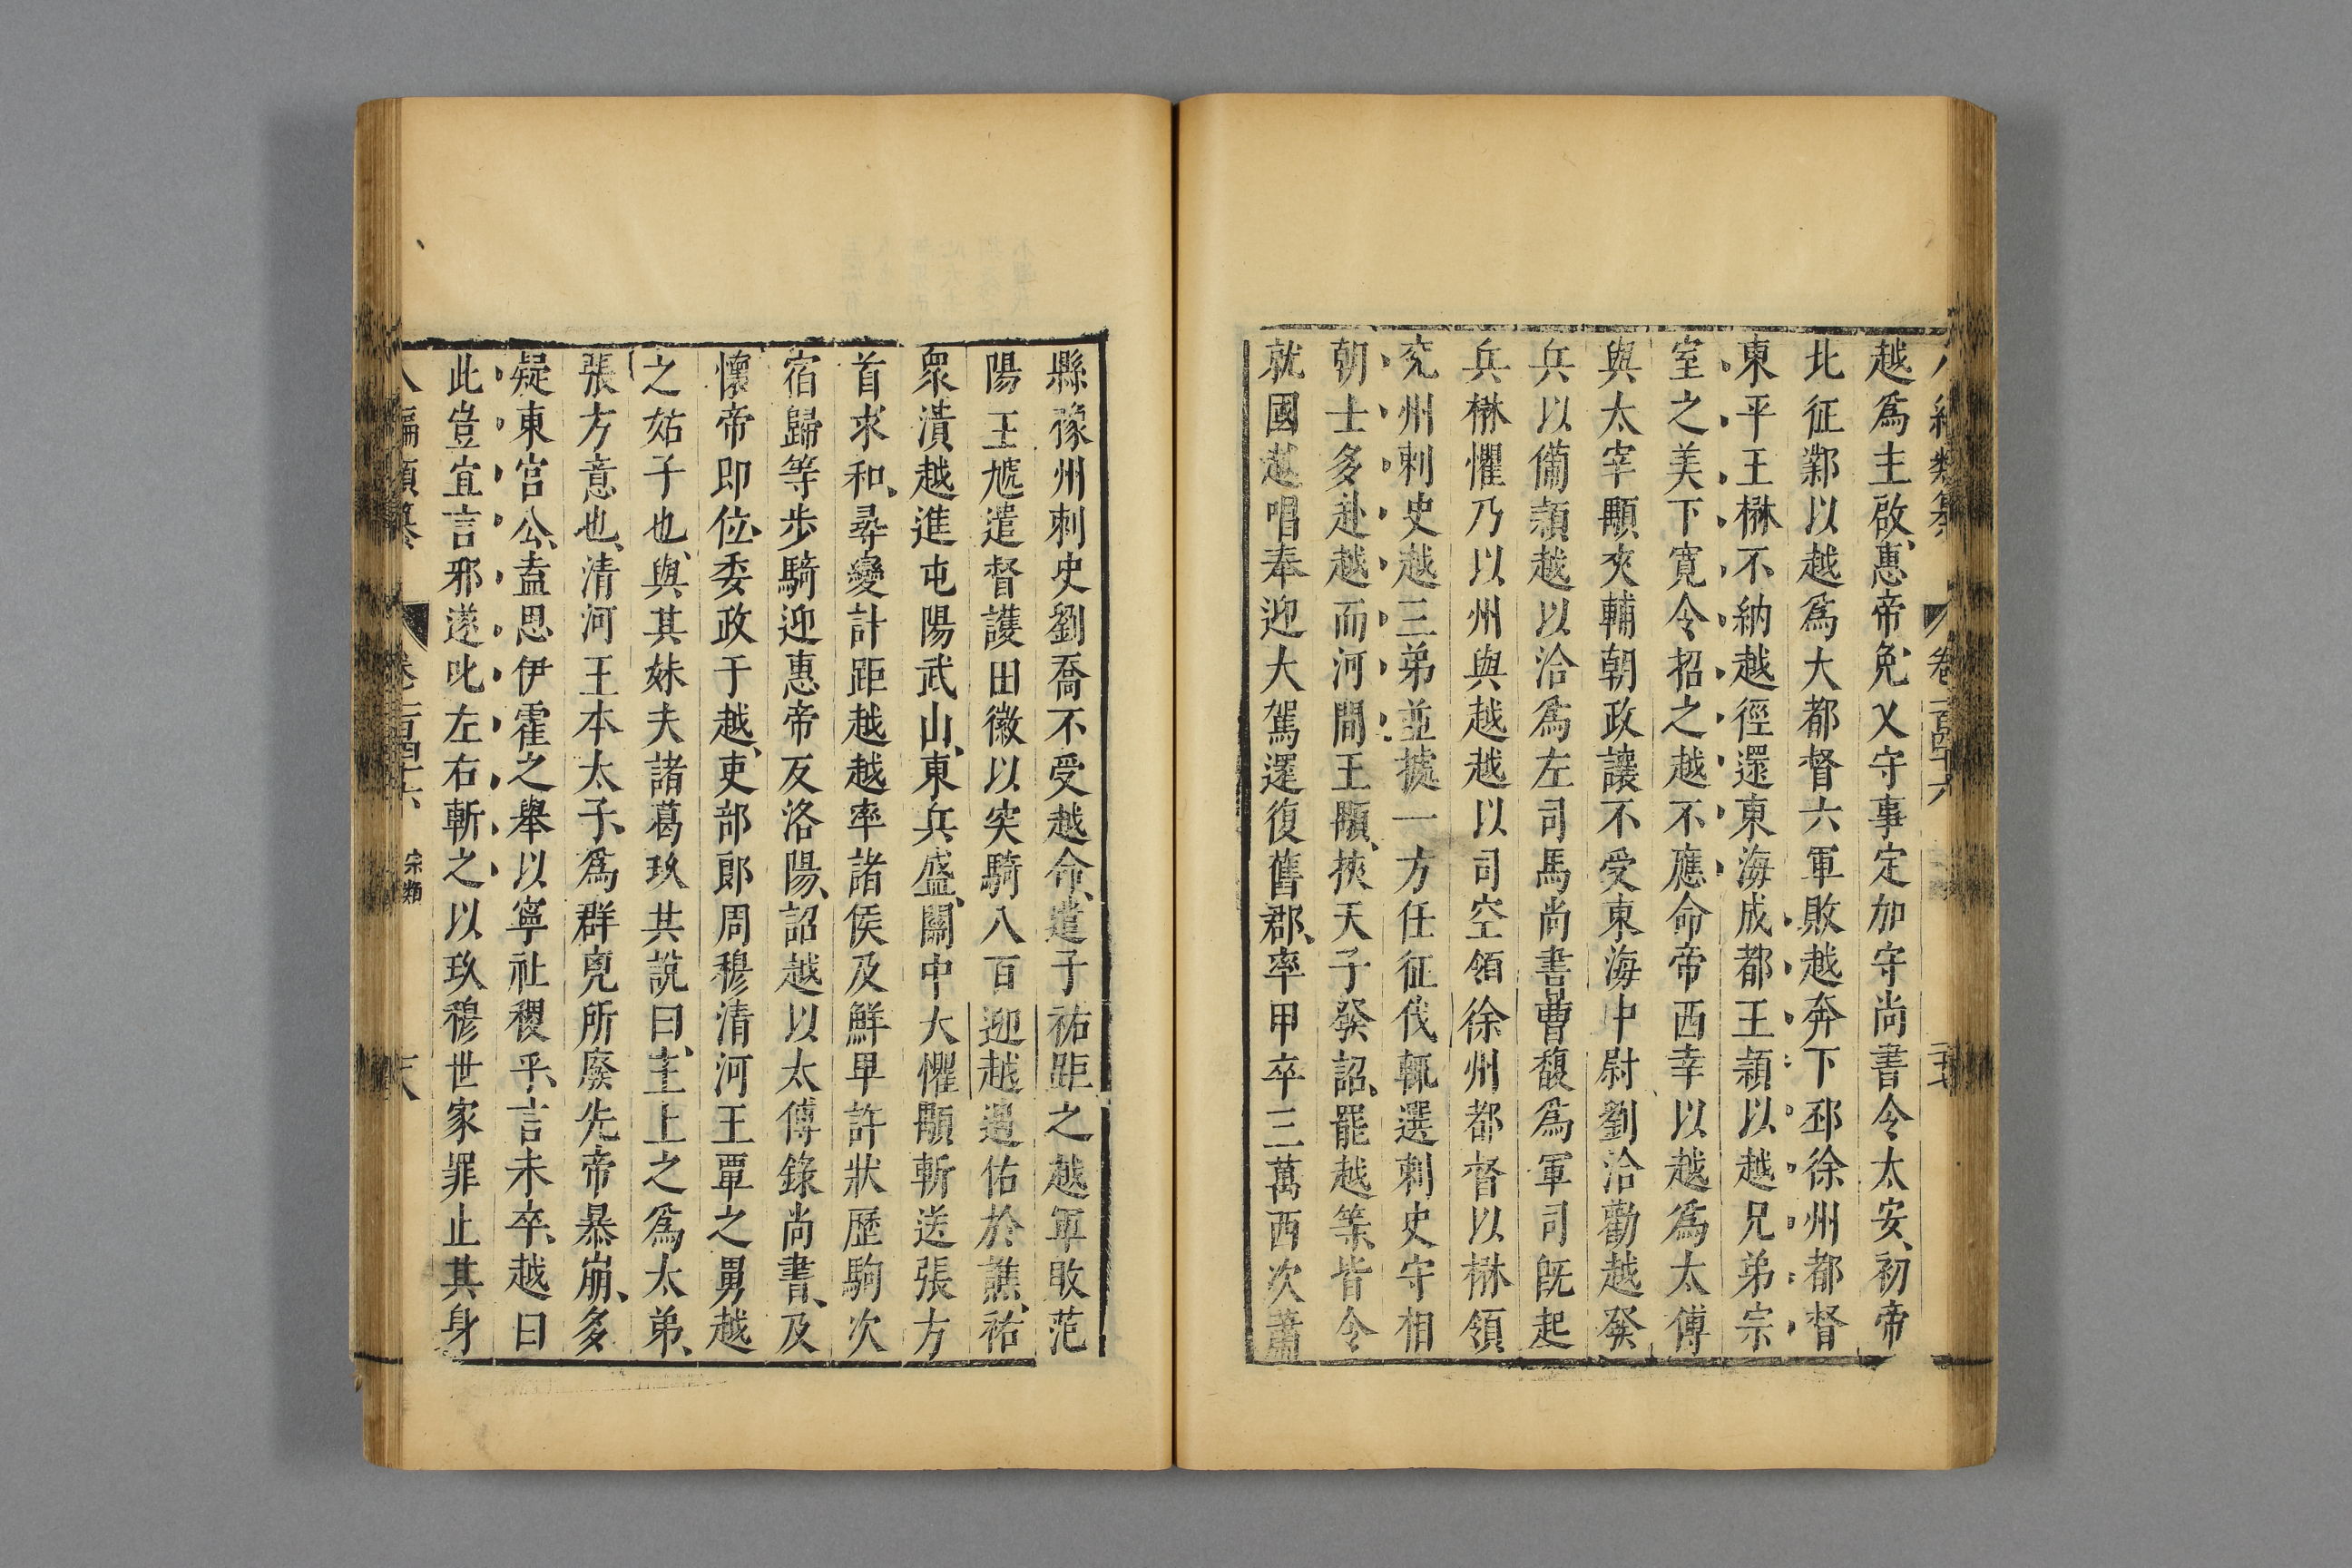 越爲主啟、惠帝免乂守事定加守尚書令太安、初帝
北征鄴以越爲大都督六軍敗越奔下邳徐州都督
東平王楙不納越徑還東海成都王穎以越兄弟宗
室之美下寛令招之越不應命帝西幸以越爲太傅
與太宰顒夾輔朝政讓不受東海中尉劉洽勸越發
兵以備穎越以洽爲左司馬尚書曹馥爲軍司旣起
兵楙懼乃以州與越越以司空領徐州都督以楙領
兖州刺史越三弟並據一方任征伐輒選刺史守相
朝士多赴越而河間王顒、挾天子發詔、罷越等、皆令
就國越唱奉迎大駕還復舊郡、率甲卒三萬西次蕭
縣豫州刺史劉喬不受越命、遣子祐距之越軍敗范
陽王虓遣督護田徽以突騎八百迎越遇佑於譙、祐
衆潰越進屯陽武山、東兵盛、關中大懼顒斬送張方
首求和、尋變計距越越率諸侯及鮮卑許狀歷駒次
宿歸等步騎迎惠帝反洛陽、詔越以太傅錄尚書、及
懷帝即位、委政于越、吏部郎周穆清河王覃之舅越
之姑子也、與其妹夫諸葛玫共說曰、主上之爲太弟、
張方意也、清河王本太子、爲群兇所廢先帝暴崩、多
疑東宮公、盍思伊霍之舉以寧社稷乎、言未卒、越曰
此豈宜言邪遂叱左右斬之以玖穆世家罪止其身
八編類纂 卷二百四十六 宗類